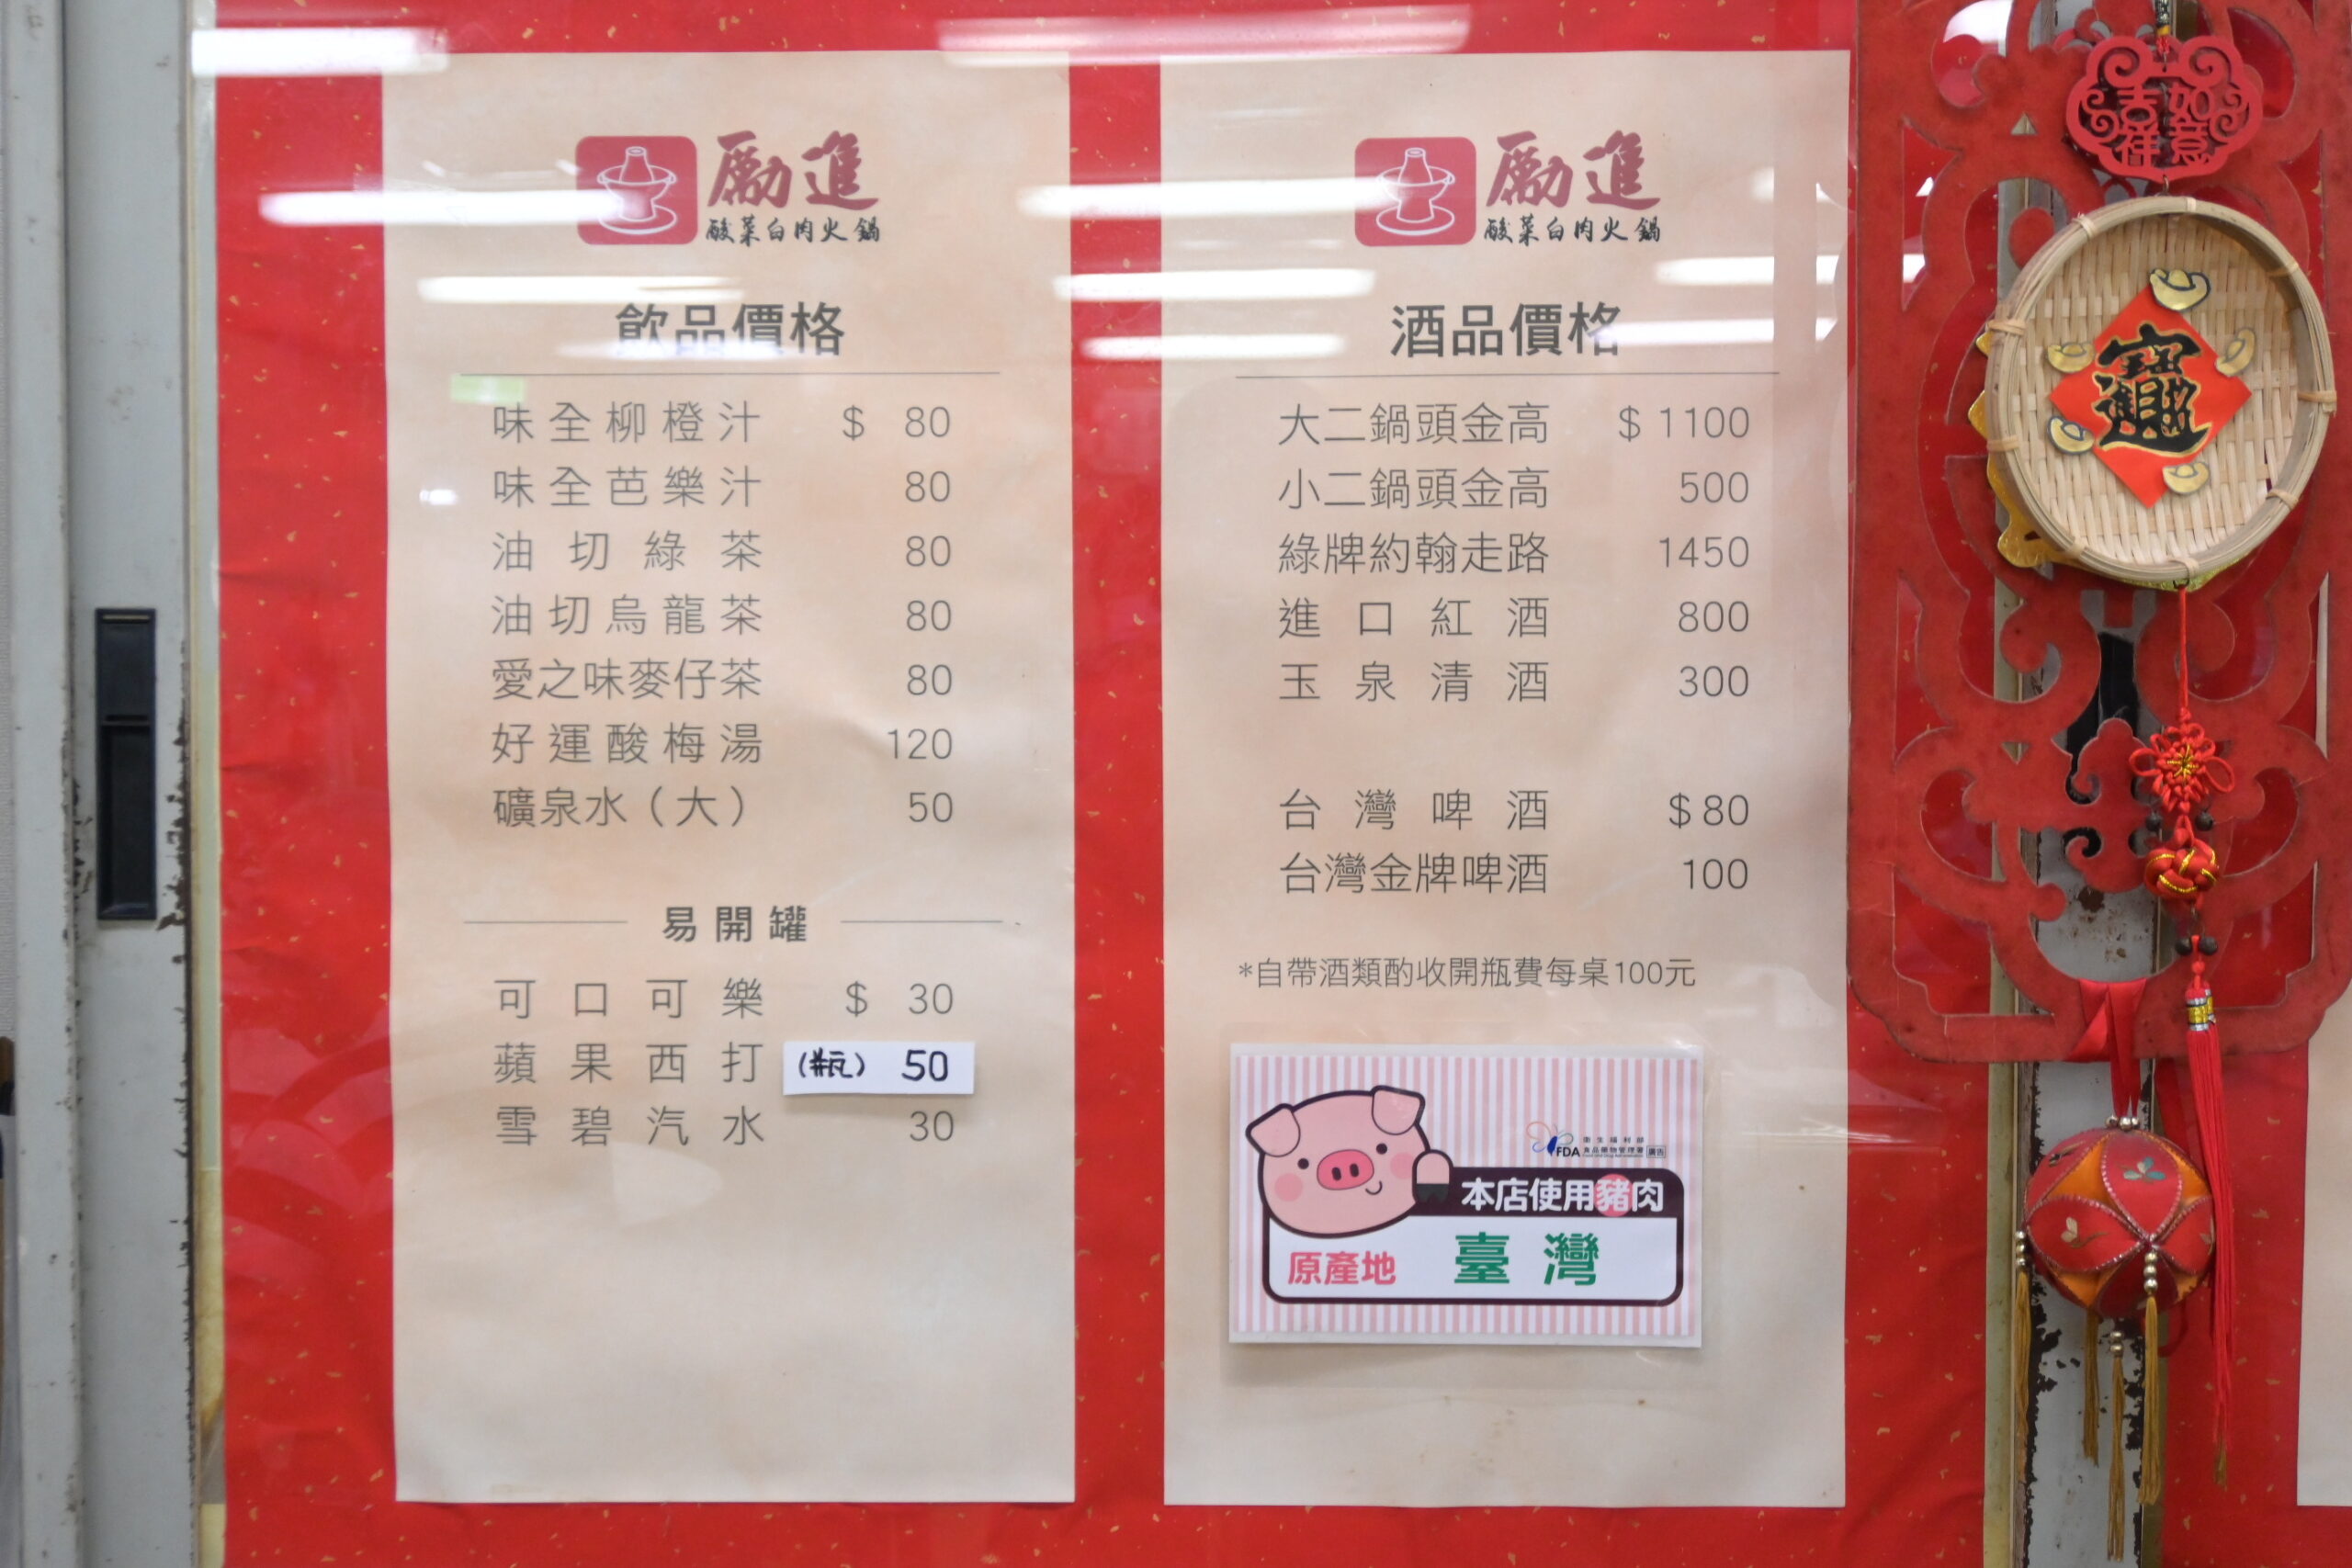 勵進
酸菜白肉火鍋
飲品價格
味全柳橙汁 $ 80
味全芭樂汁 80
油切綠茶 80
油切烏龍茶 80
愛之味麥仔茶 80
好運酸梅湯 120
礦泉水（大） 50
易開罐
可口可樂 $ 30
蘋果西打 (瓶) 50
雪碧汽水 30
勵進
酸菜白肉火鍋
酒品價格
大二鍋頭金高 $ 1100
小二鍋頭金高 500
綠牌約翰走路 1450
進口紅酒 800
玉泉清酒 300
台灣啤酒 $ 80
台灣金牌啤酒 100
*自帶酒類酌收開瓶費每桌100元
FDA 衛生福利部
食品藥物管理署 廣告
本店使用豬肉
原產地 臺灣
吉祥如意
招財進寶